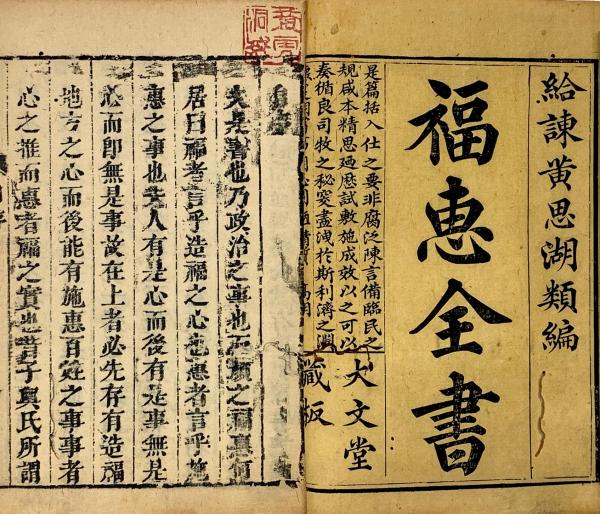 給諫黃思湖類編
福惠全書
是篇括入仕之要非腐泛陳言備臨民之
規咸本精思廼歷試敷施成效以之可以
奏循良司牧之秘䆳盡洩於斯利濟之淵
大文堂
藏板
夫是書也乃政治之事也而顏之福惠何
居曰福者言乎造福之心也惠者言乎施
惠之事也夫人有是心而後有是事無是
心而即無是事故在上者必先存有造福
地方之心而後能有施惠百姓之事事者
心之推而惠者福之實也昔子輿氏所謂